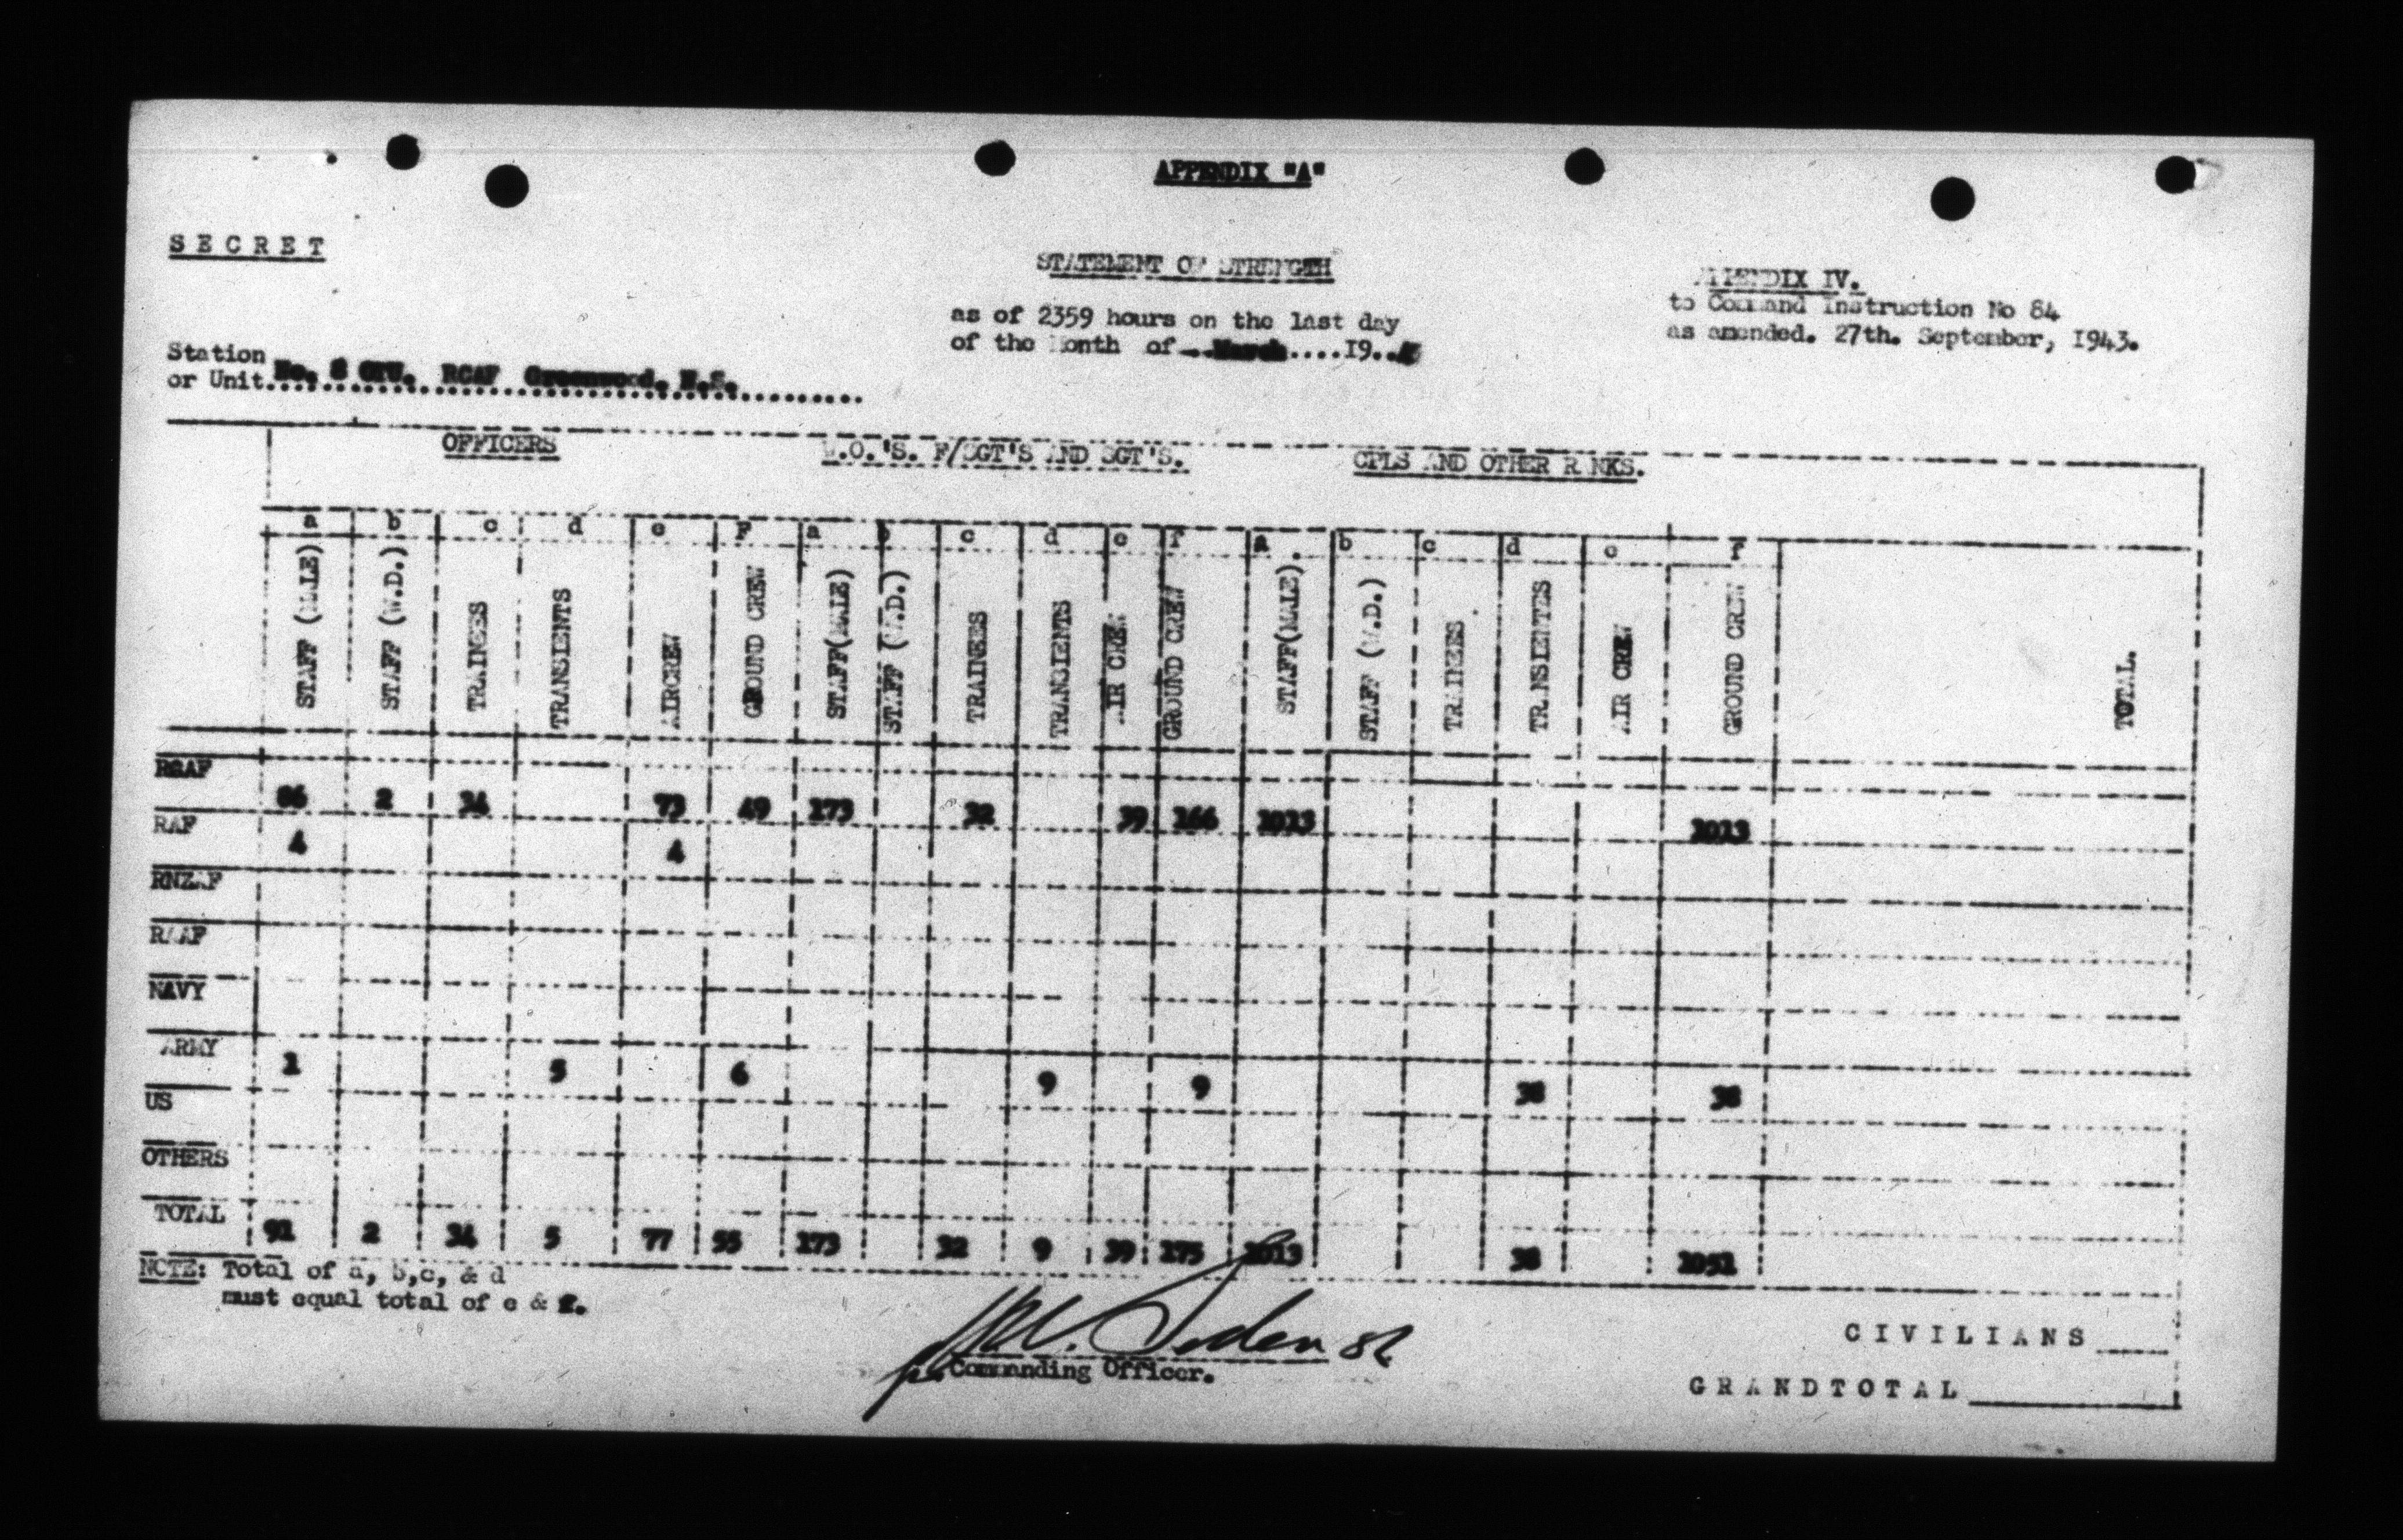 APPENDIX "A"
SECRET
STATEMENT OF STRENGTH
as of 2359 hours on the last day
of the Month of ..March....19..45
APPENDIX IV.
to Command Instruction No 84
as amended. 27th. September, 1943.
Station
or Unit No. 8 OTU. RCAF Greenwood. N.S.
OFFICERS W.O.'S. F/SGT'S AND SGT'S. CPLS AND OTHER RANKS.
a b c d e F a b c d e f a b c d e f
STAFF (MALE) STAFF (W.D.) TRAINEES TRANSIENTS AIRCREW GROUND CREW STAFF(MALE) STAFF (W.D.) TRAINEES TRANSIENTS AIR CREW GROUND CREW STAFF(MALE). STAFF (W.D.) TRAINEES TRANSIENTES AIR CREW GROUND CREW TOTAL.
RCAF 86 2 34 73 49 173 32 39 166 1013 1013
RAF 4 4
RNZAF
RAAF
NAVY
ARMY 1 5 6 9 9 38 38
US
OTHERS
TOTAL 91 2 34 5 77 55 173 32 9 39 175 1013 38 1051
NOTE: Total of a, b,c, & d
must equal total of e & f.
Commanding Officer.
CIVILIANS
GRANDTOTAL